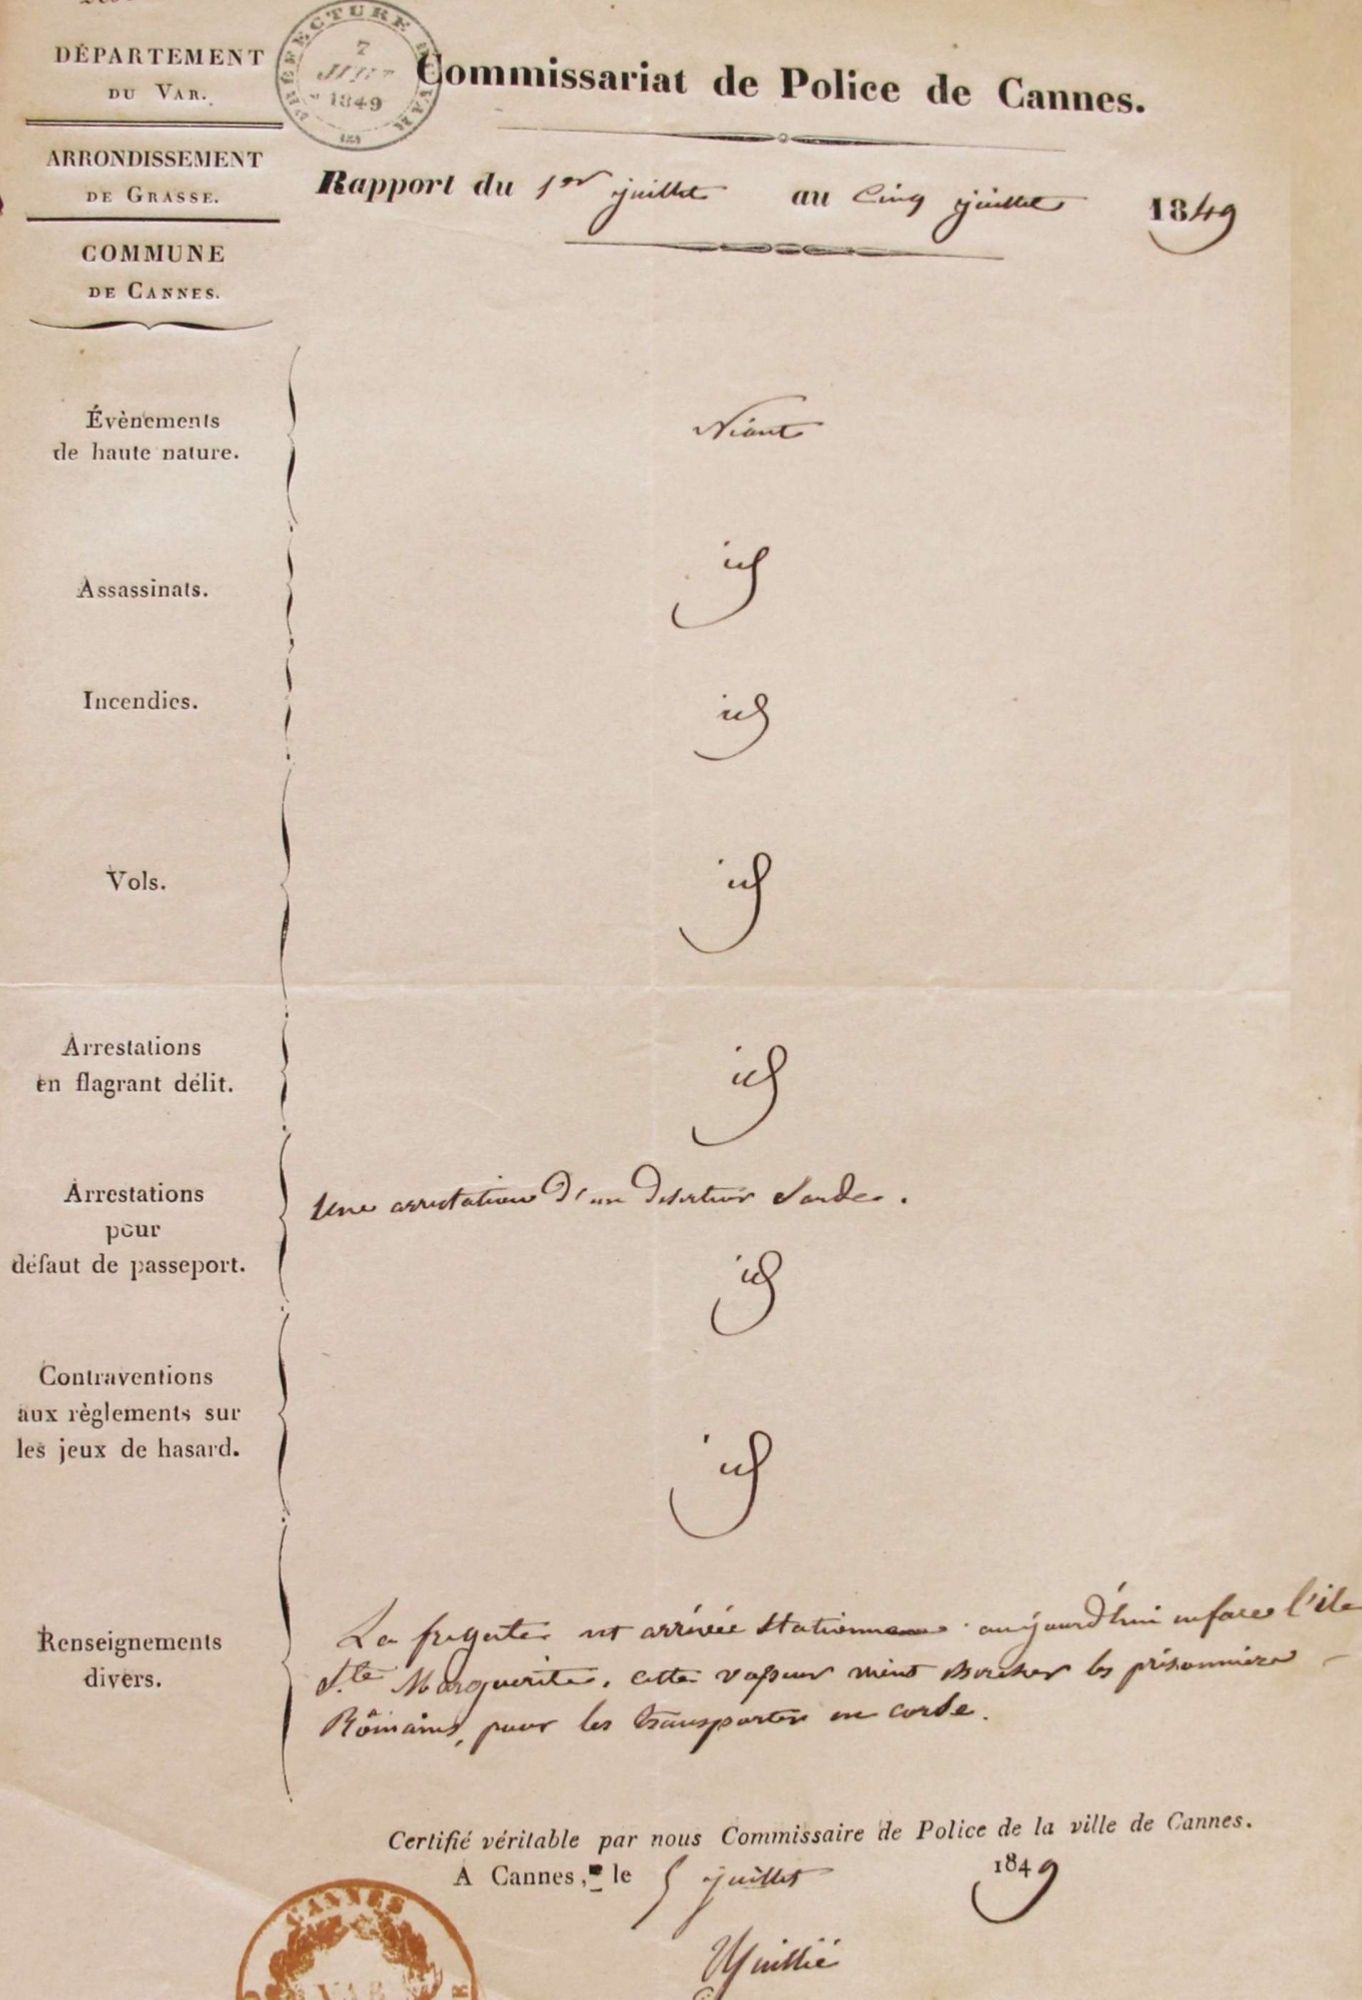 DÉPARTEMENT
DU VAR.
PRÉFECTURE DU VAR
7
JUIL
1849
Commissariat de Police de Cannes.
ARRONDISSEMENT
DE GRASSE.
Rapport du 1er juillet au Cinq juillet 1849
COMMUNE
DE CANNES.
Évènements
de haute nature.
Néant
Assassinats.
id
Incendies.
id
Vols.
id
Arrestations
en flagrant délit.
id
Arrestations
pour
défaut de passeport.
Une arrestation d'un deserteur Sarde.
id
Contraventions
aux règlements sur
les jeux de hasard.
id
Renseignements
divers.
La fregate est arrivée Stationner aujourd'hui enface l'ile
Ste Marguerite, cette vapeur vient les prisonniers
Romains, pour les transporter en corse.
Certifié véritable par nous Commissaire de Police de la ville de Cannes.
A Cannes, le 5 juillet 1849
CANNES
VAR